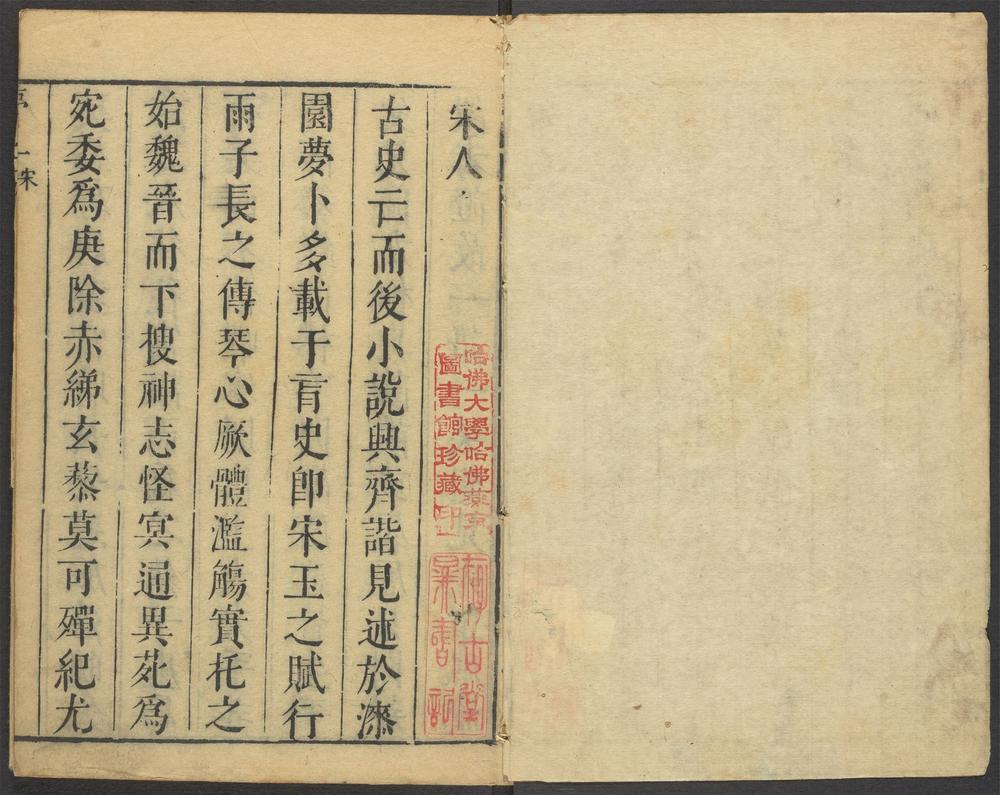 宋人
古史亡而後小說興齊諧見述於漆
園夢卜多載于盲史卽宋玉之賦行
雨子長之傳琴心厥體濫觴實托之
始魏晉而下搜神志怪冥通異苑為
宛委爲庚除赤綈玄藜莫可殫紀尤
哈佛大學哈佛燕京
圖書館珍藏印